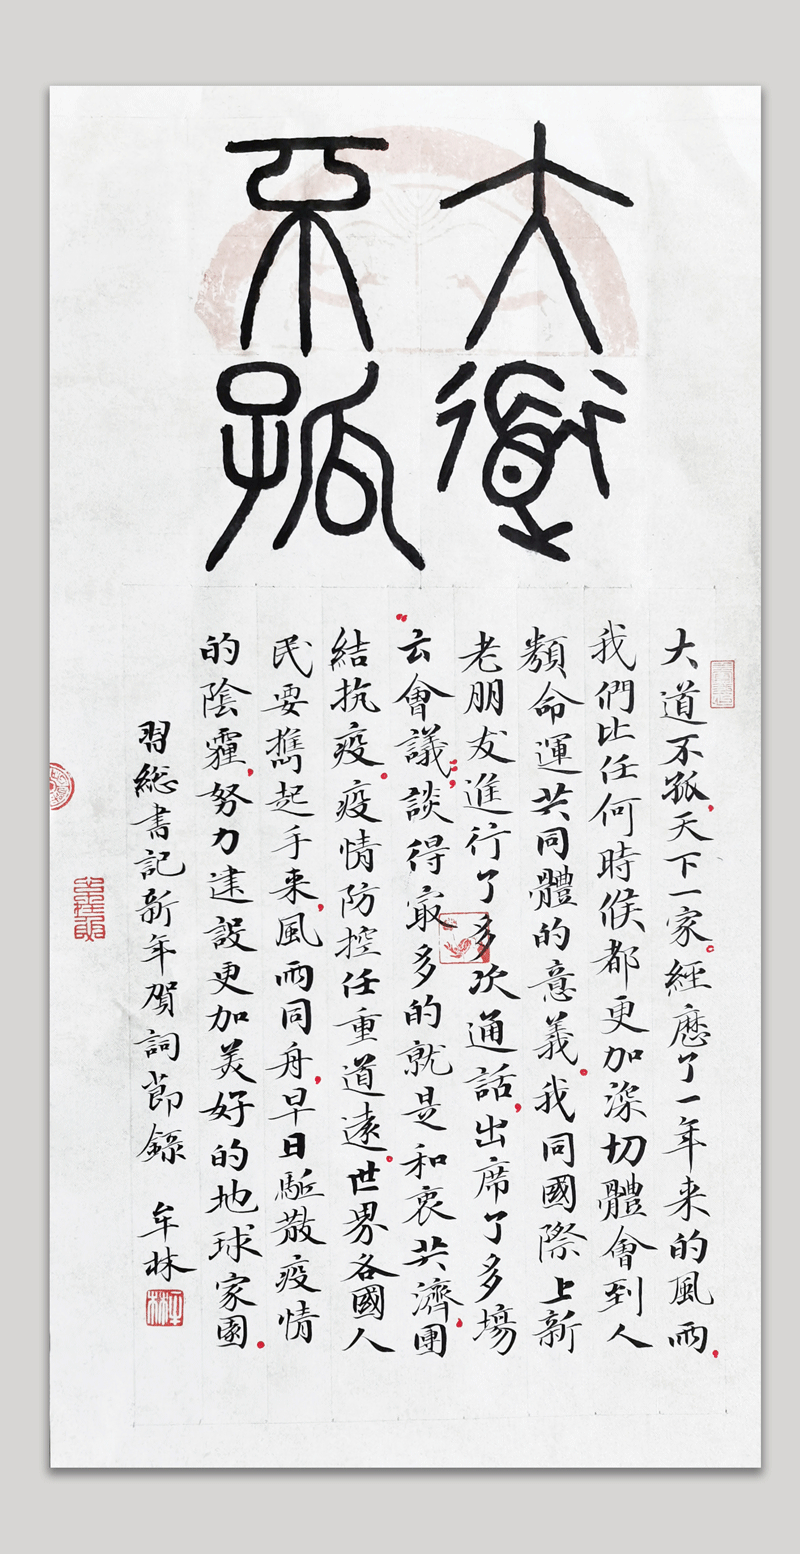 大道
不孤
大道不孤，天下一家。經歷了一年来的風雨，
我們比任何時候都更加深切體會到人
類命運共同體的意義。我同國際上新
老朋友進行了多次通話，出席了多場
“云會議”，談得最多的就是和衷共濟，團
結抗疫。疫情防控任重道遠。世界各國人
民要攜起手来，風雨同舟，早日驅散疫情
的陰霾，努力建設更加美好的地球家園。
習總書記新年贺詞節錄 牟林
牟林